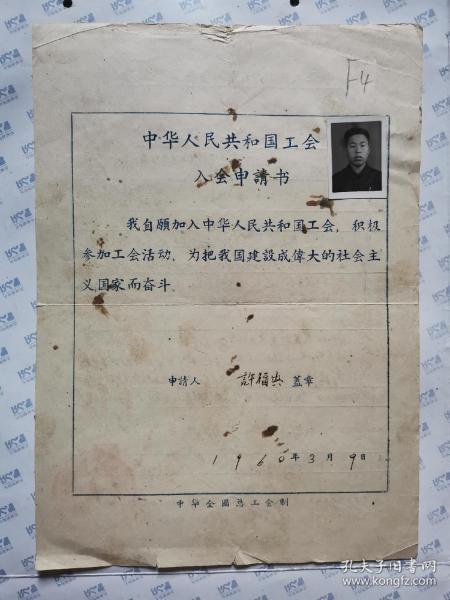 F4
中华人民共和国工会
入会申請书
我自願加入中华人民共和国工会，积极
参加工会活动、为把我国建設成偉大的社会主
义国家而奋斗．
申請人 許福典 蓋章
1960年3月9日
中华全國总工会制
孔夫子旧书网
www.kongfz.com